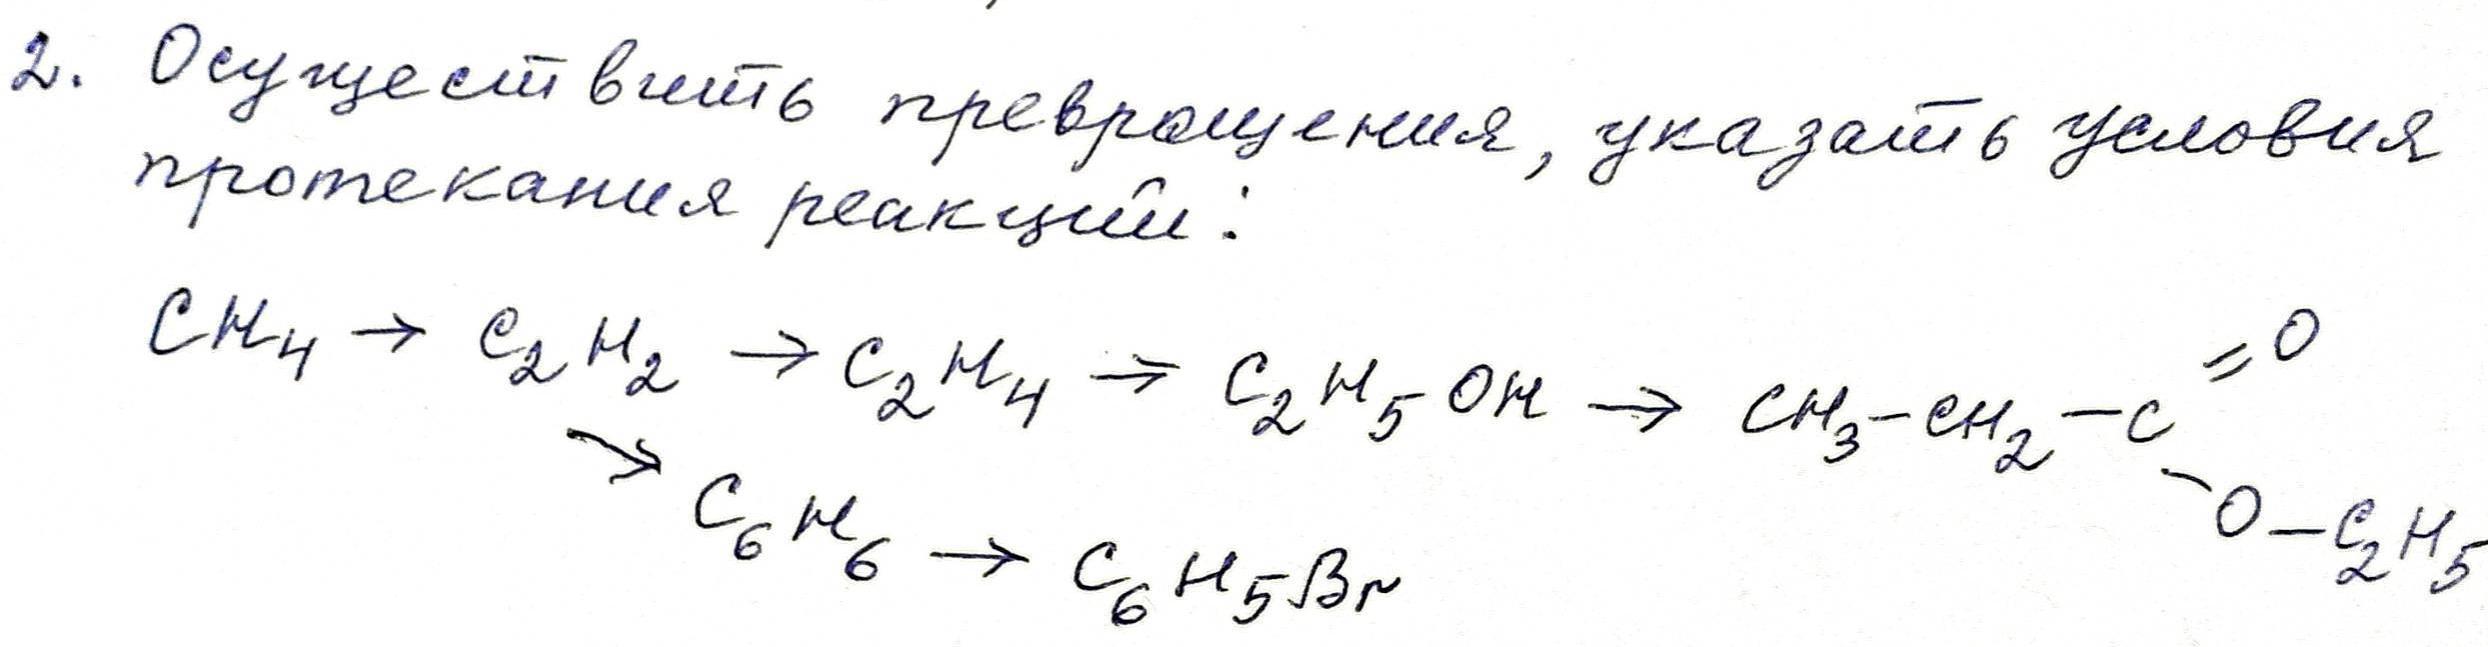 2. Осуществить превращения, указать условия
протекания реакций:
CH₄ → C₂H₂ → C₂H₄ → C₂H₅OH → CH₃-CH₂-C=O
-O-C₂H₅
→ C₆H₆ → C₆H₅Br